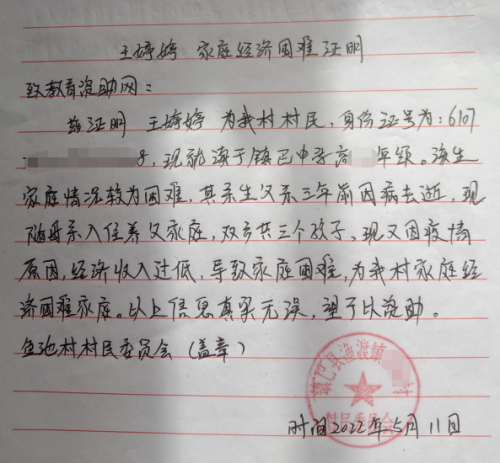 王婷婷 家庭经济困难证明
致教育资助网：
兹证明 王婷婷 为我村村民，身份证号为：6107
8，现就读于镇巴中学高 年级。该生
家庭情况较为困难，其亲生父亲三年前因病去逝，现
随母亲入住养父家庭，双方共三个孩子、现又因疫情
原因，经济收入过低，导致家庭困难，为我村家庭经
济困难家庭。以上信息真实无误，望予以资助。
鱼池村村民委员会（盖章）
镇巴县渔渡镇 村
村民委员会
时间2022年5月11日